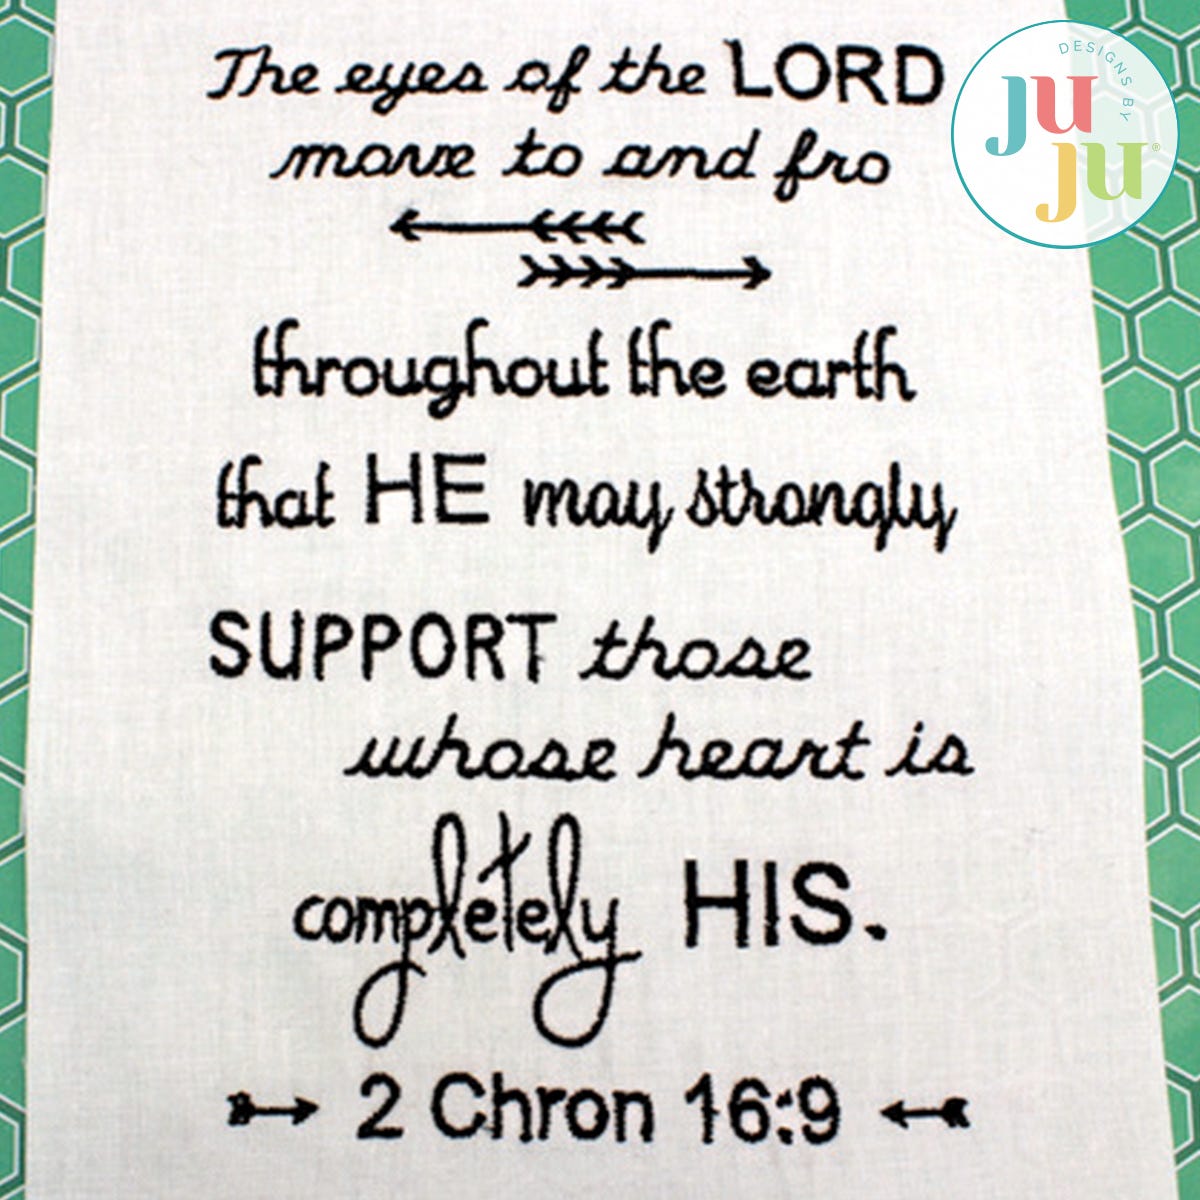 The eyes of the LORD
move to and fro
throughout the earth
that HE may strongly
SUPPORT those
whose heart is
completely HIS.
2 Chron 16:9
DESIGNS BY
JU
JU®